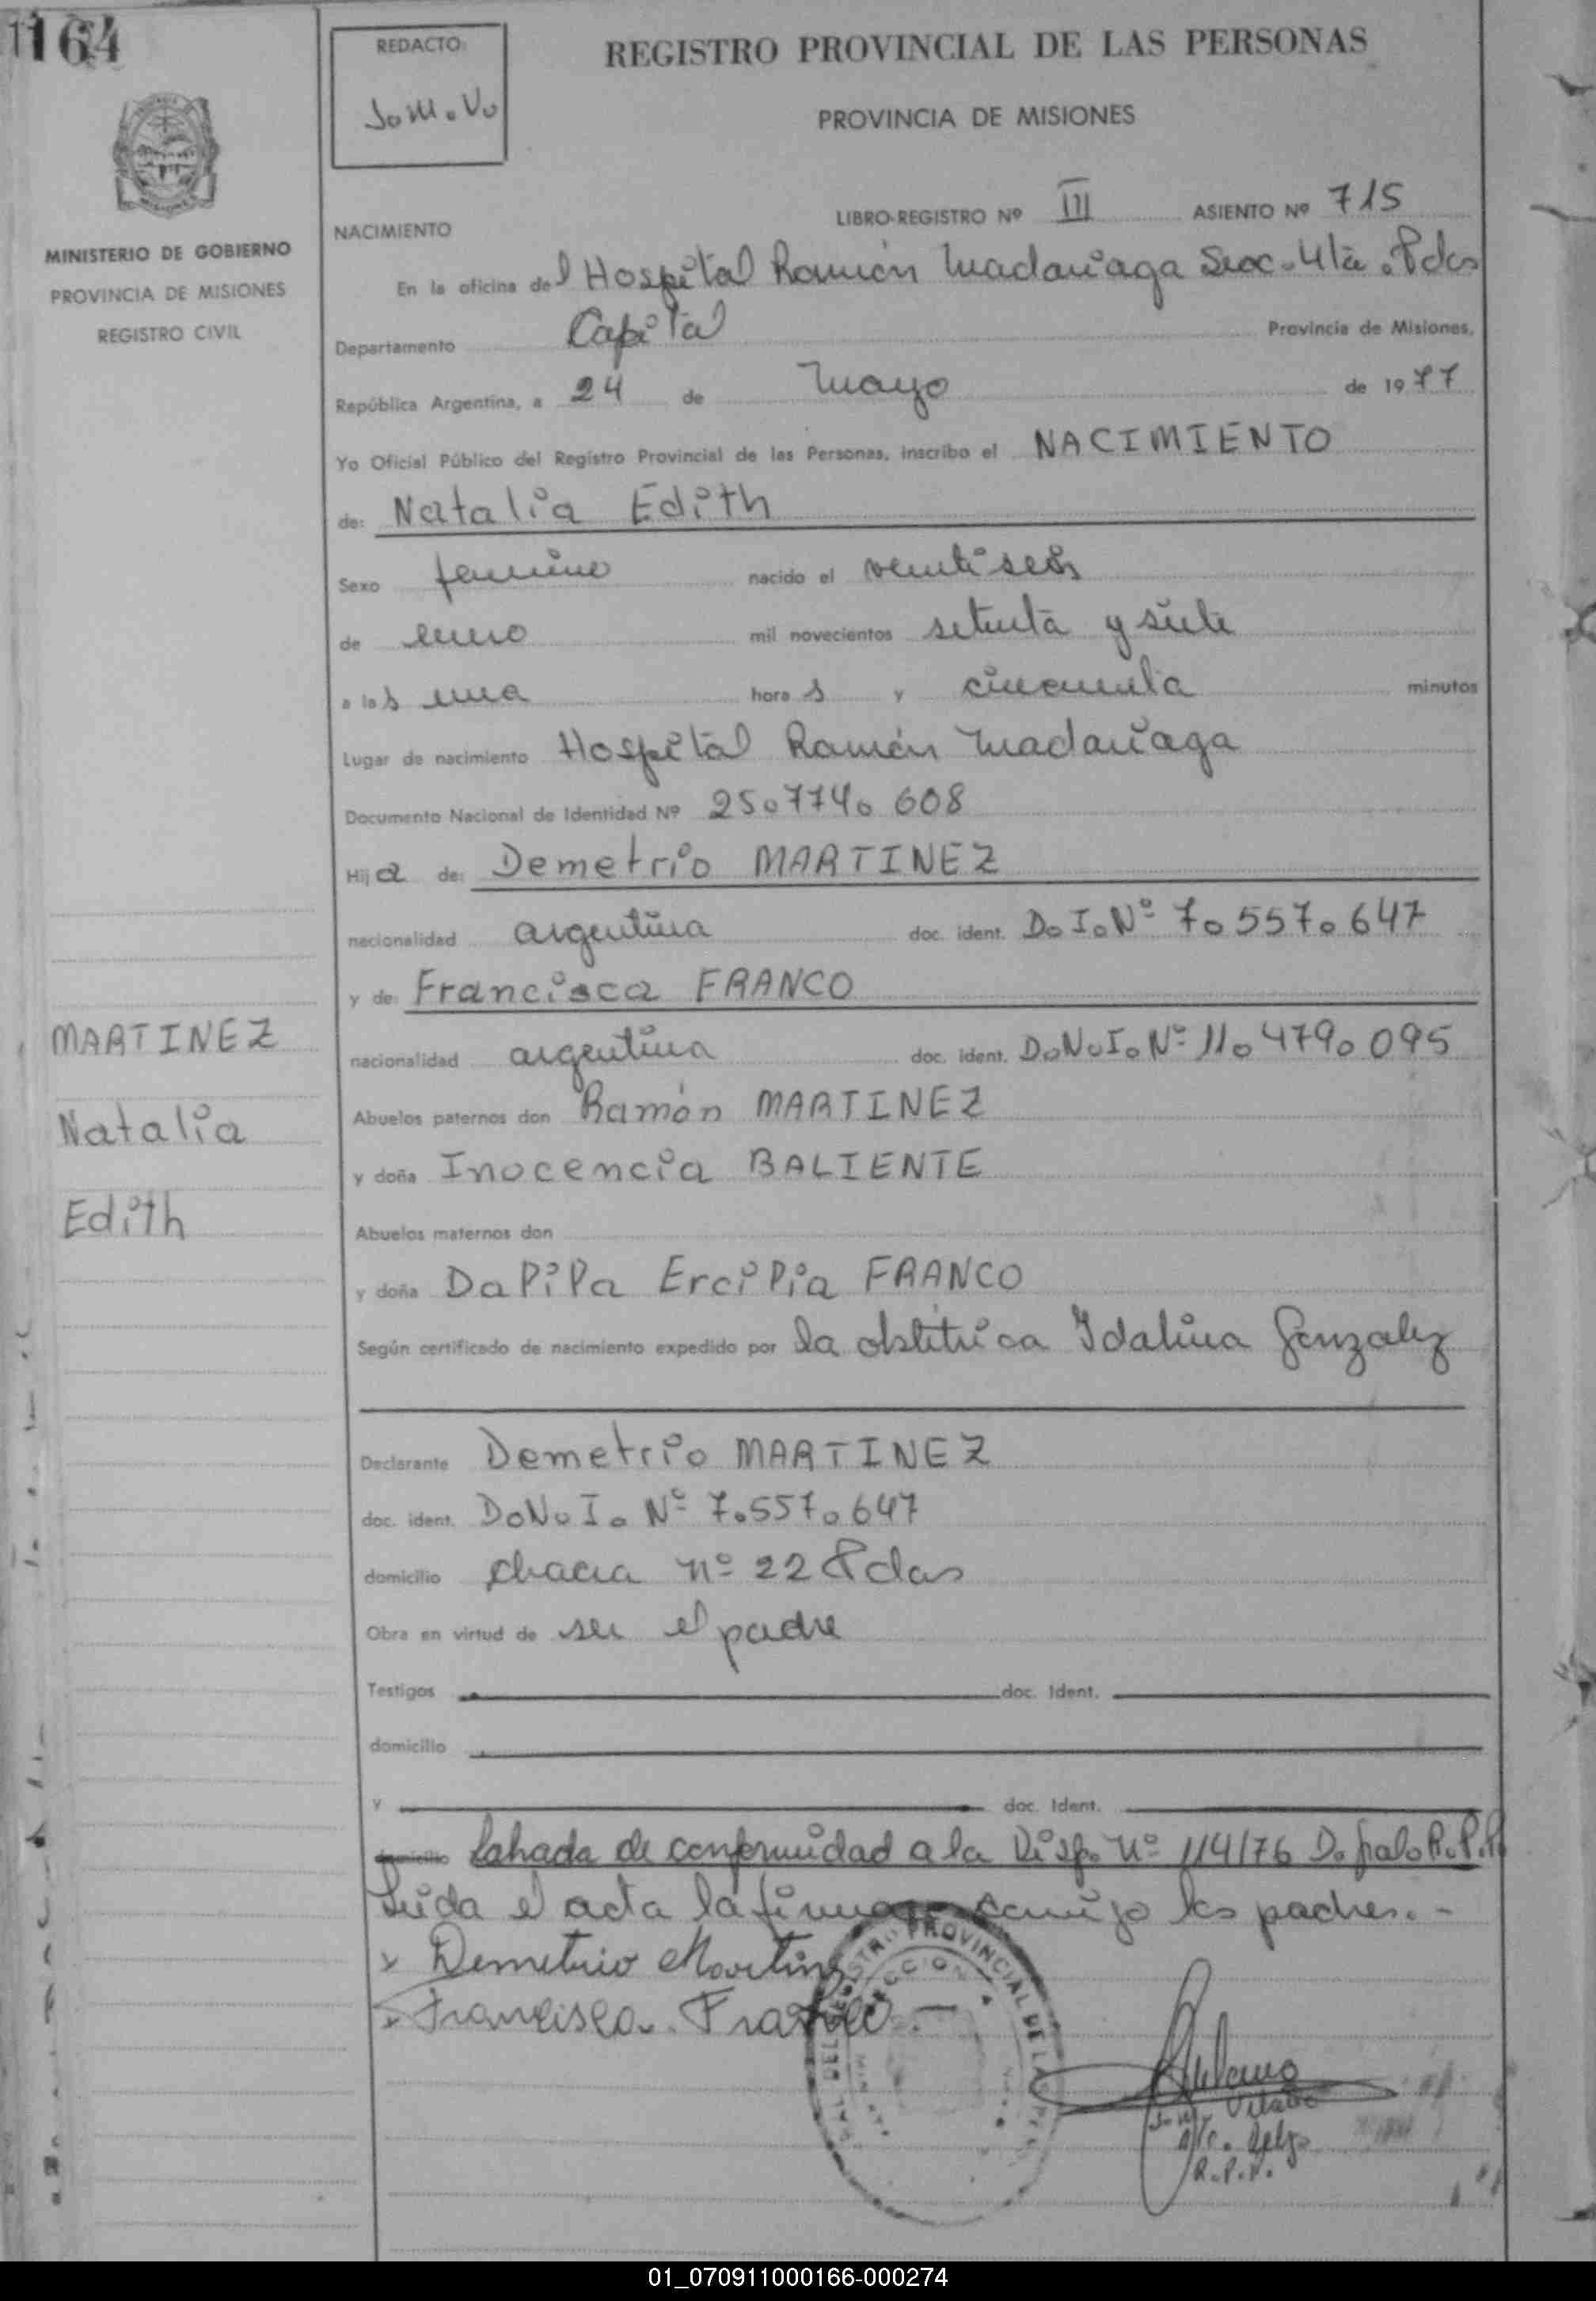 1164
REDACTO:
J.M.V.
REGISTRO PROVINCIAL DE LAS PERSONAS
PROVINCIA DE MISIONES
MINISTERIO DE GOBIERNO
PROVINCIA DE MISIONES
REGISTRO CIVIL
NACIMIENTO
LIBRO-REGISTRO Nº III ASIENTO Nº 715
En la oficina del Hospital Ramón Madariaga Secc. 4ta. Pdas
Departamento Capital Provincia de Misiones,
República Argentina, a 24 de Mayo de 1977
Yo Oficial Público del Registro Provincial de las Personas, inscribo el NACIMIENTO
de: Natalia Edith
Sexo femenino nacido el veintiseis
de enero mil novecientos setenta y siete
a las una horas y cincuenta minutos
Lugar de nacimiento Hospital Ramón Madariaga
Documento Nacional de Identidad Nº 25.774.608
Hija de: Demetrio MARTINEZ
nacionalidad argentina doc. ident. D.I.Nº 7.557.647
y de: Francisca FRANCO
nacionalidad argentina doc. ident. D.N.I.Nº 11.479.095
Abuelos paternos don Ramón MARTINEZ
y doña Inocencia BALIENTE
Abuelos maternos don
y doña Dalila Ercilia FRANCO
Según certificado de nacimiento expedido por la obstetrica Idalina Gonzalez
Declarante Demetrio MARTINEZ
doc. ident. D.N.I. Nº 7.557.647
domicilio chacra nº 22 Pdas
Obra en virtud de ser el padre
Testigos doc. Ident.
domicilio
y doc. Ident.
domicilio Labrada de conformidad a la Disp. Nº 114/76 D. R.P.P.
Leida el acta la firman conmigo los padres.-
x Demetrio Martinez
x Francisca Franco.-
MARTINEZ
Natalia
Edith
REGISTRO PROVINCIAL DE LAS
R.P.P.
01_070911000166-000274